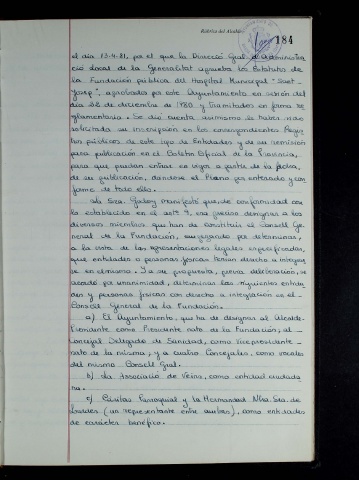 Rúbrica del Alcalde
184
el día 13-4-81, por el que la Direcció Gral. d'Administra
ció Local de la Generalitat aprueba los Estatutos de
la Fundación pública del Hospital Municipal "Sant
Josep", aprobados por este Ayuntamiento en sesión del
día 22 de diciembre de 1980 y tramitados en forma re
glamentaria. Se dió cuenta asimismo de haber sido
solicitada su inscripción en los correspondientes Regis
tros públicos de este tipo de Entidades y de su remisión
para publicación en el Boletín Oficial de la Provincia,
para que puedan entrar en vigor a partir de la fecha
de su publicación, dándose el Pleno por enterado y con
forme de todo ello.
La Sra. manifestó que, de conformidad con
lo establecido en el artº 9, era preciso designar a los
diversos miembros que han de constituir el Consell Ge
neral de la Fundación, empezando por determinar,
a la vista de las representaciones legales especificadas,
que entidades o personas físicas tenían derecho a integrar
se en el mismo. Y a su propuesta, previa deliberación, se
acordó por unanimidad, determinar las siguientes entida
des y personas físicas con derecho a integración en el
Consell General de la Fundación:
a) El Ayuntamiento, que ha de designar al Alcalde-
Presidente como Presidente nato de la Fundación; al
Concejal Delegado de Sanidad, como Vicepresidente
nato de la misma; y a cuatro Concejales, como vocales
del mismo Consell Gral.
b) La Associació de Veïns, como entidad ciudada
na.
c) Cáritas Parroquial y la Hermandad Ntra. Sra. de
Lourdes (un representante entre ambas), como entidades
de carácter benéfico.